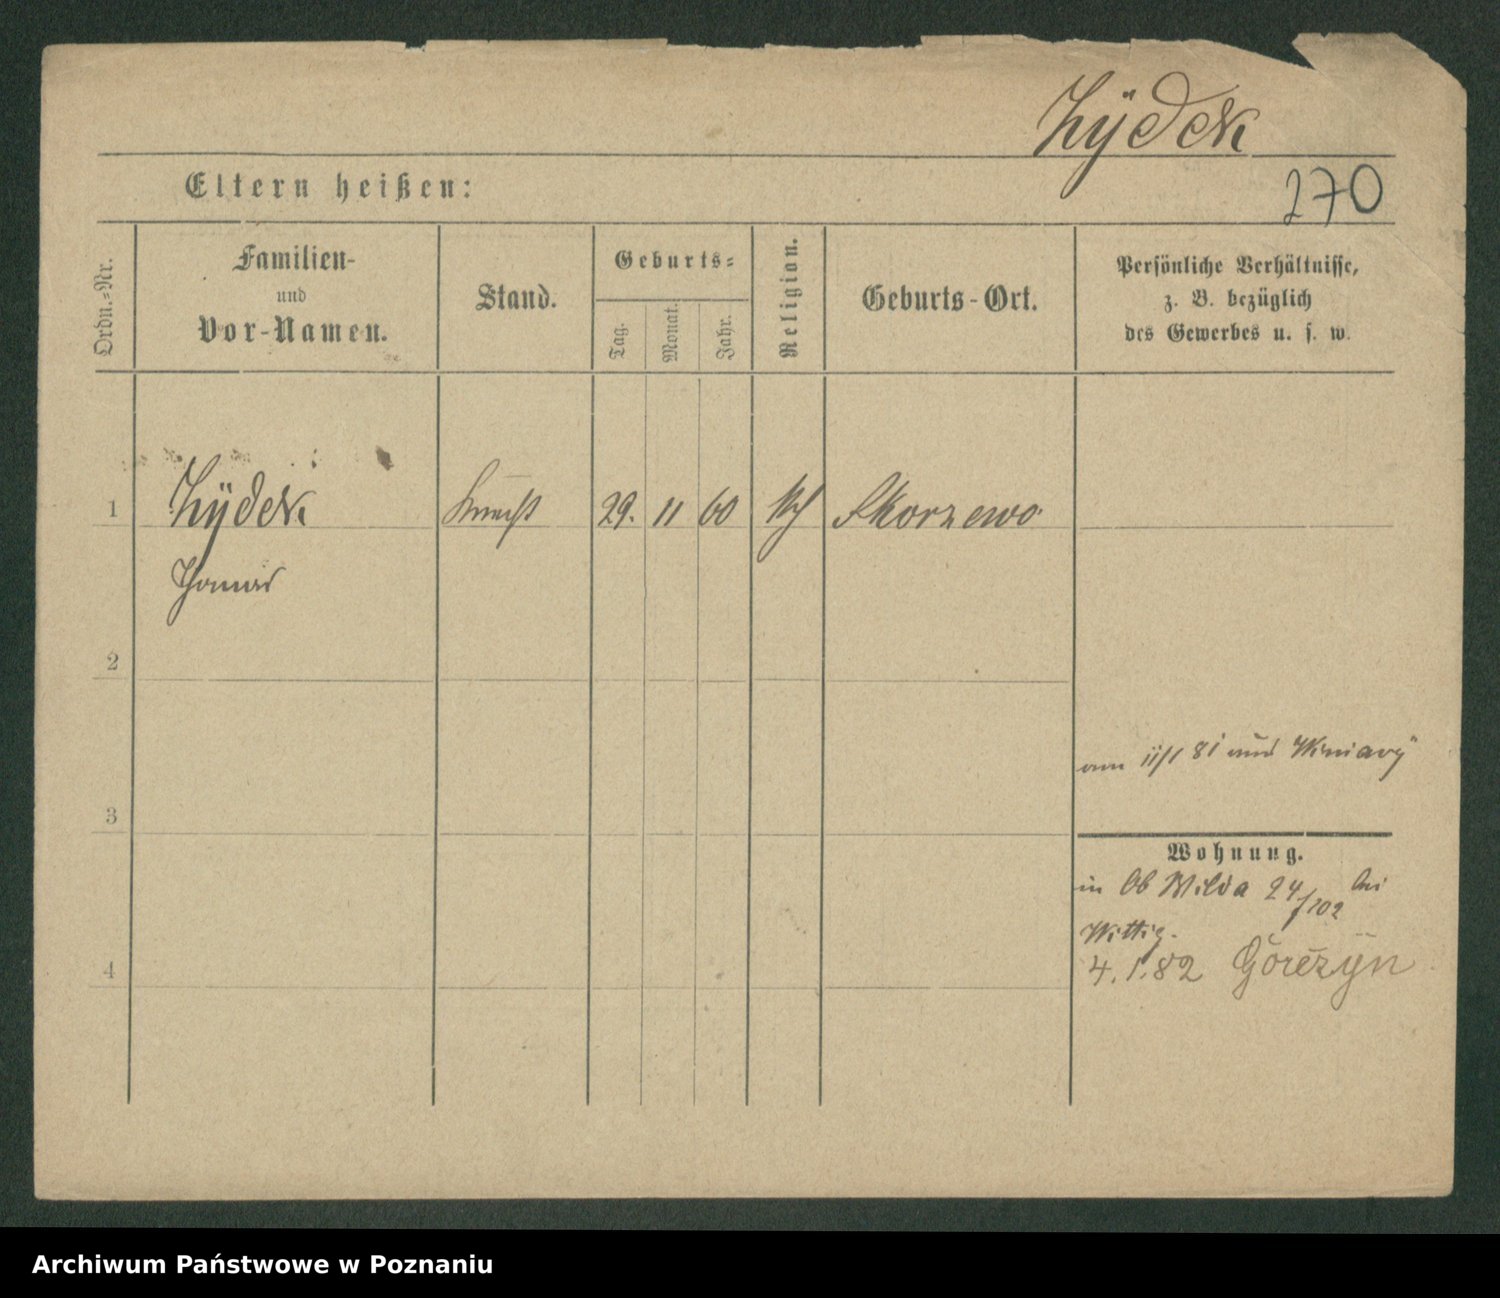 Zÿdek
270
Eltern heißen:
Ordn.=Nr.
Familien-
und
Vor-Namen.
Stand.
Geburts=
Tag.
Monat.
Jahr.
Religion.
Geburts-Ort.
Persönliche Verhältnisse,
z. B. bezüglich
des Gewerbes u. s. w.
1 Zÿdek Knecht 29. 11 60 kth Skorzewo
Thomas
2
am 11/1 81 aus Winiary
3
Wohnung.
in Ob Wilda 24/102 bei
Wittig.
4. 1. 82 Górczÿn
4
Archiwum Państwowe w Poznaniu